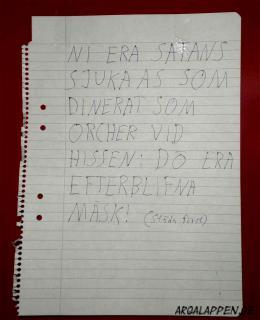 NI ERA SATANS
SJUKA AS SOM
DINERAT SOM
ORCHER VID
HISSEN: DO ERA
EFTERBLIFNA
MÄSK! (Städa först)
ARGALAPPEN.SE